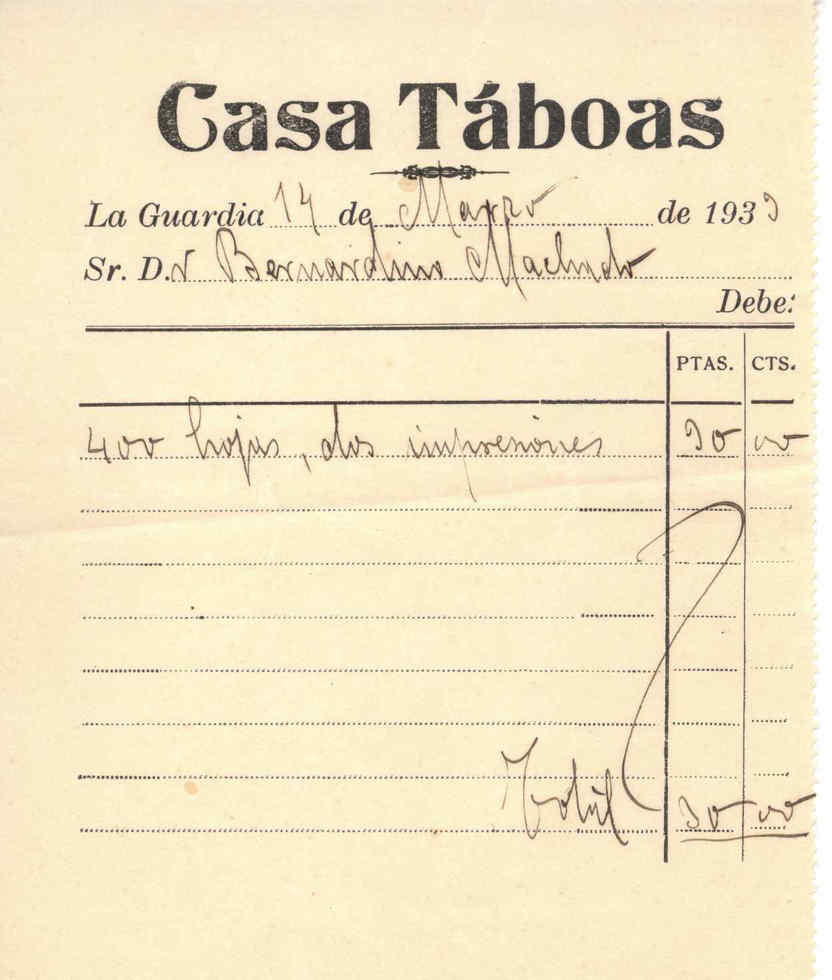 Casa Táboas
La Guardia 14 de Marzo de 1933
Sr. D.n Bernardino Machado
Debe:
PTAS. CTS.
400 hojas, dos impresiones 30 00
Total 30 00